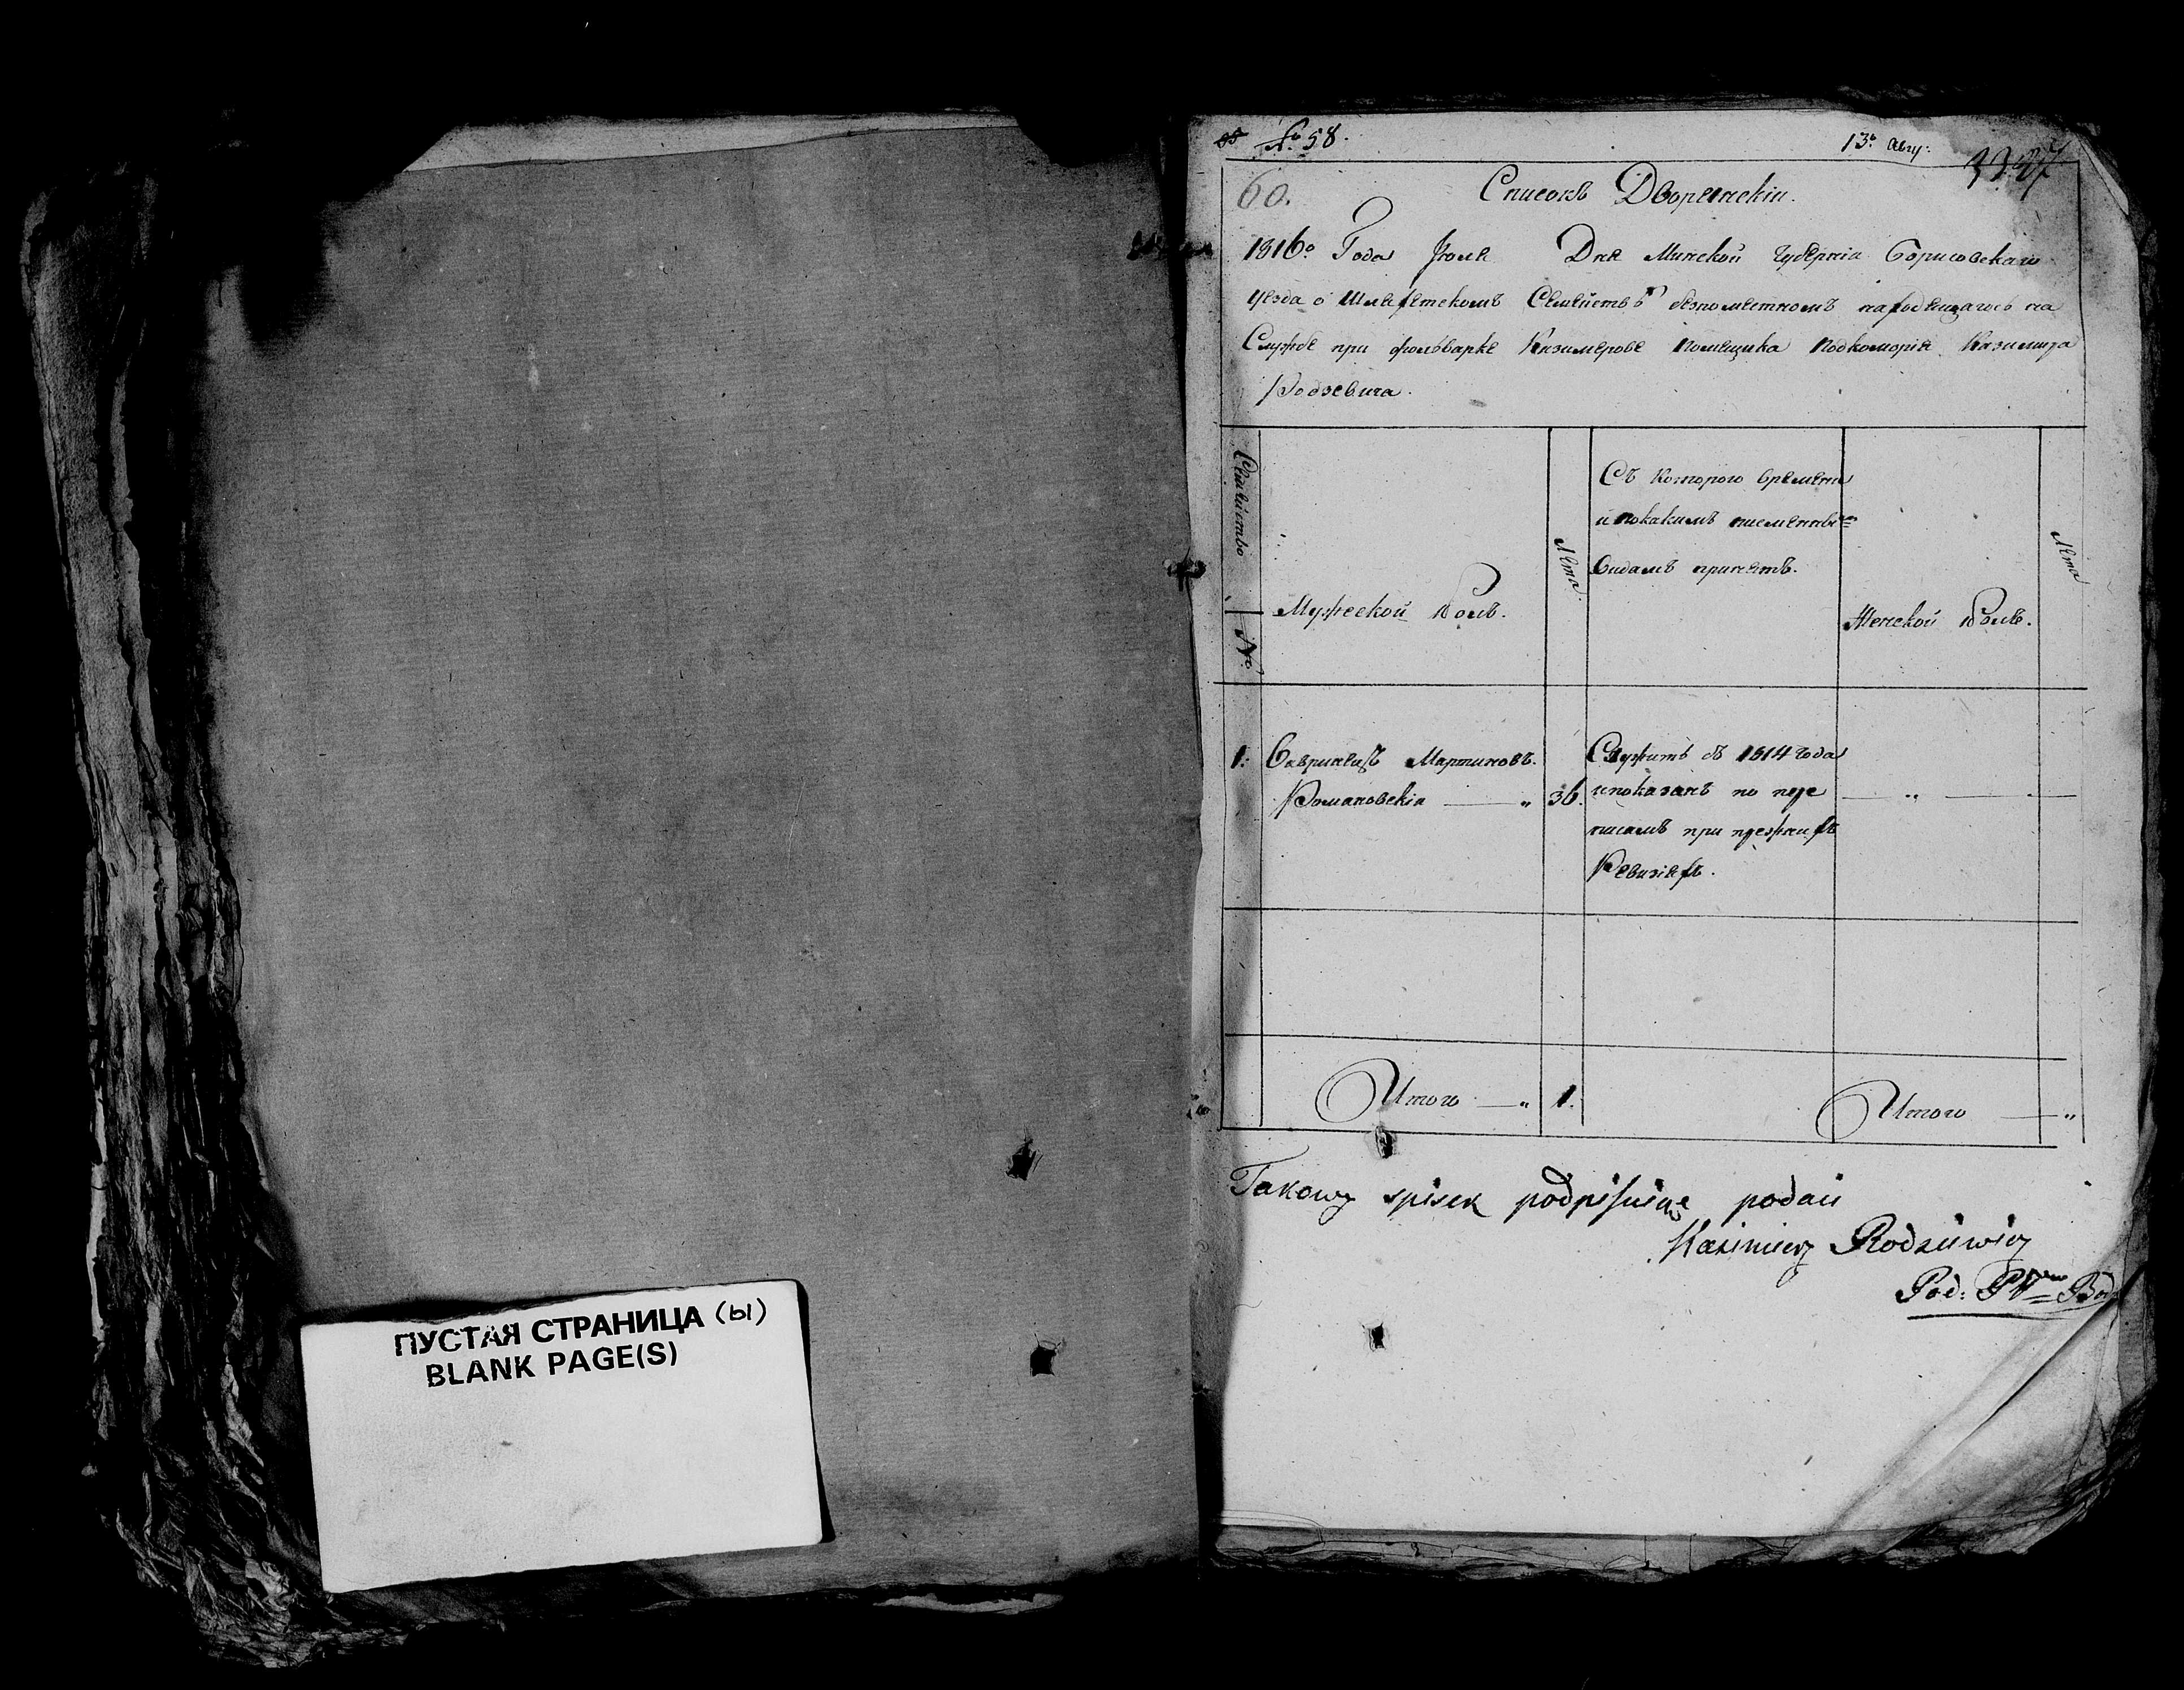 ПУСТАЯ СТРАНИЦА (ы)
BLANK PAGE(S)
№ 58.
13ь Авгу:
60.
Списокъ Дворянскiи.
1816о Года Iюля Дня Минской Губернiи Борисовскаго
уезда о Шляхетскомъ Семействѣ безпоместномъ находящагось на
Службе при фольварке Казимерове помещика Подкоморiя Казимира
Родзевича.
Семейство
№
Мужескои Полъ.
Лета
Съ котораго времени
и покакимъ писменнымъ
видамъ принятъ.
Женской Полъ.
Лета
1: Гавринецъ Мартиновъ.
Романовскiи — „ 36.
Служитъ съ 1814 года
ипоказанъ по пере
писамъ при прежнихъ
Ревизiяхъ.
— „ —
Итого — „ 1.
Итого — „
Takowy spisek podpisuiąc podaii
Kazimierz Rodziewicz
Pod: Ptu